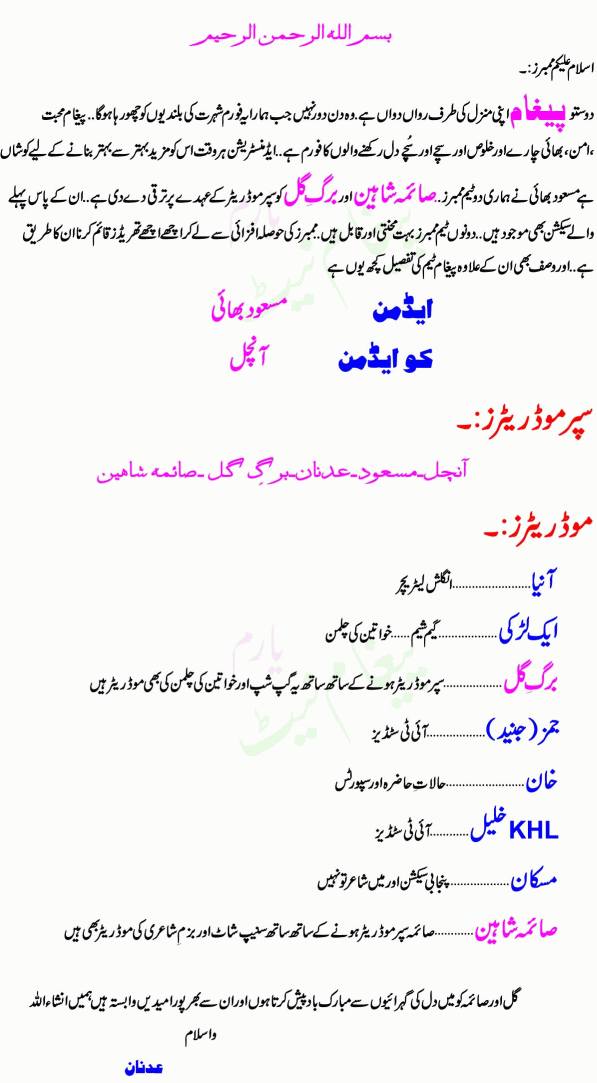 بسم اللہ الرحمن الرحیم
اسلام علیکم ممبرز:۔
دوستو پیغام اپنی منزل کی طرف رواں دواں ہے۔وہ دن دور نہیں جب ہمارا یہ فورم شہرت کی بلندیوں کو چھو رہا ہو گا..پیغام محبت
،امن، بھائی چارے اور خلوص اور سچے اور سُچے دل رکھنے والوں کا فورم ہے..ایڈمنسٹریشن ہر وقت اس کو مزید بہتر سے بہتر بنانے کے لیے کوشاں
ہے مسعود بھائی نے ہماری دو ٹیم ممبرز..صائمہ شاہین اور برگِ گل کو سپر موڈریٹر کے عہدے پر ترقی دے دی ہے..ان کے پاس پہلے
والے سیکشن بھی موجود ہیں..دونوں ٹیم ممبرز بہت محنتی اور قابل ہیں..ممبرز کی حوصلہ افزائی سے لے کر اچھے اچھے تھریڈز قائم کرنا ان کا طریق
ہے..اور وصف بھی ان کے علاوہ پیغام ٹیم کی تفصیل کچھ یوں ہے
ایڈمن مسعود بھائی
کو ایڈمن آنچل
سپر موڈریٹرز:۔
آنچل۔مسعود۔عدنان۔برگِ گل ۔صائمہ شاہین
موڈریٹرز:۔
آنیا........................انگلش لیٹریچر
ایک لڑکی..................گیم شیم......خواتین کی چلمن
برگِ گل..................سپر موڈریٹر ہونے کے ساتھ ساتھ یہ گپ شپ اور خواتین کی چلمن کی بھی موڈریٹر ہیں
جمز (جنید).................آئی ٹی سٹڈیز
خان........................حالاتِ حاضرہ اور سپورٹس
KHL خلیل...........آئی ٹی سٹڈیز
مسکان..................پنجابی سیکشن اور میں شاعر تو نہیں
صائمہ شاہین............صائمہ سپر موڈریٹر ہونے کے ساتھ ساتھ سنیپ شاٹ اور بزمِ شاعری کی موڈریٹر بھی ہیں
گل اور صائمہ کو میں دل کی گہرائیوں سے مبارک باد پیش کرتا ہوں اور ان سے بھرپور امیدیں وابستہ ہیں ہمیں انشاء اللہ
واسلام
عدنان
پیغام نیٹ